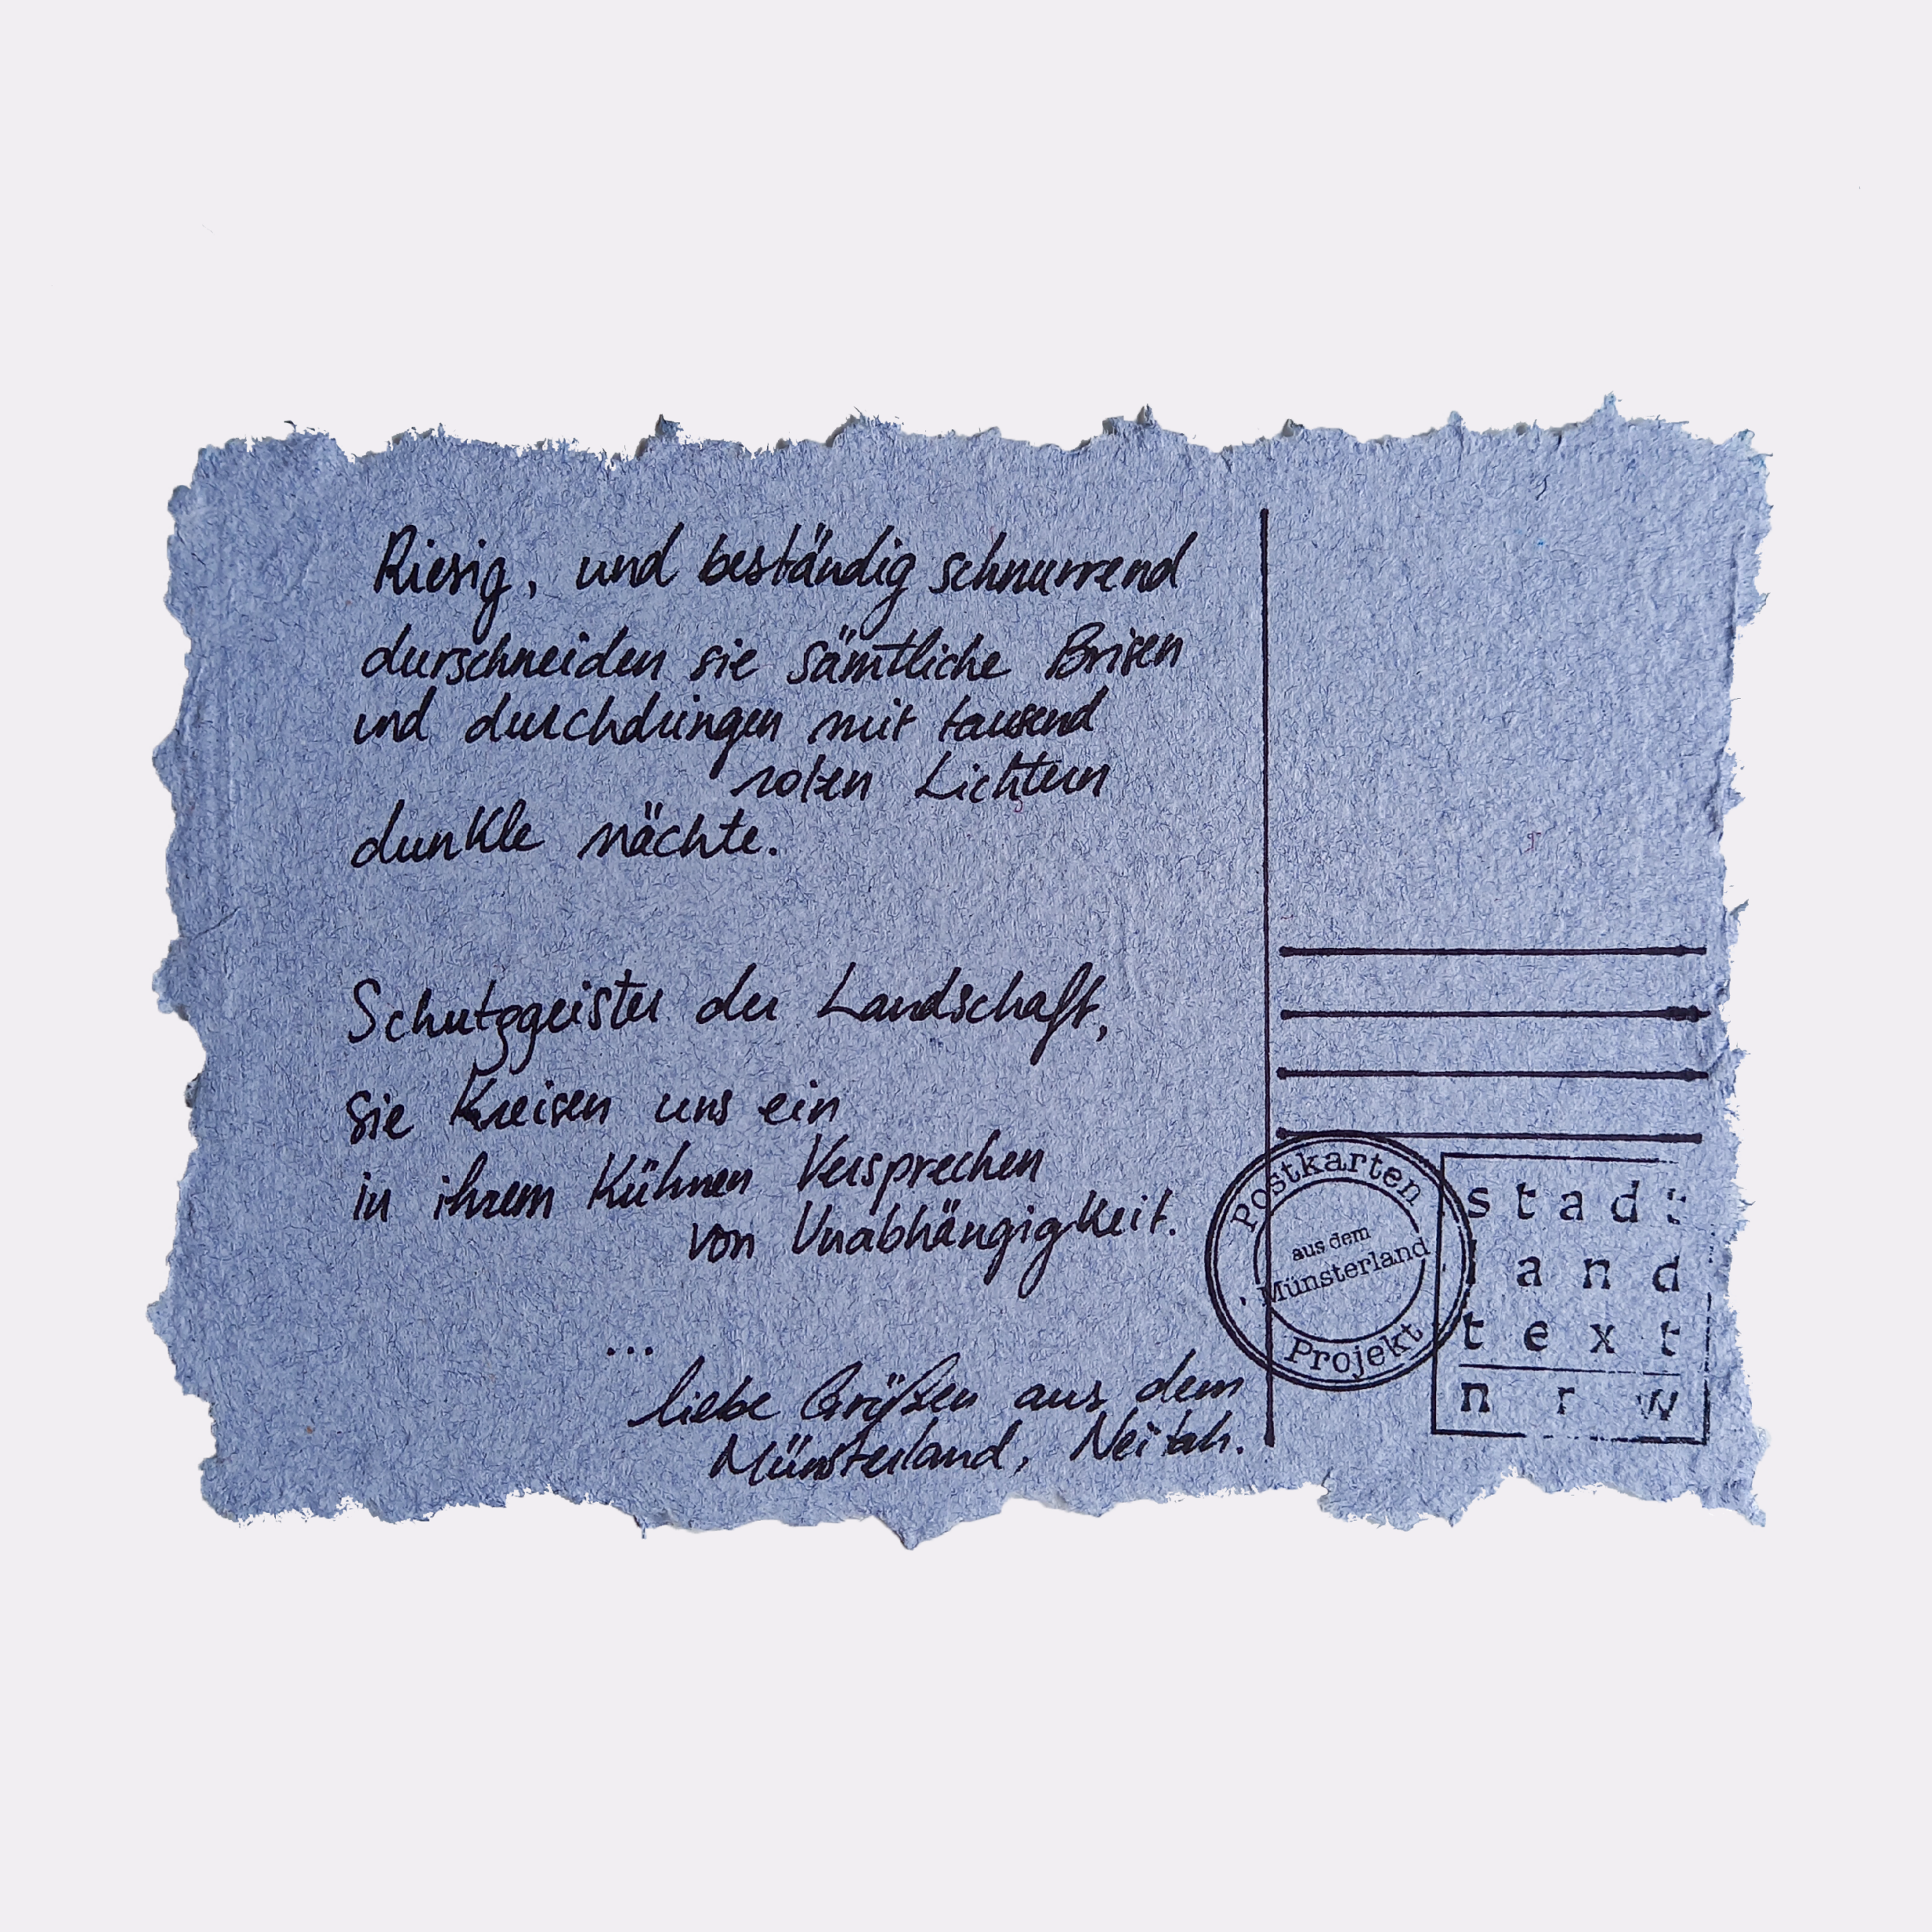 Riesig, und beständig schnurrend
durschneiden sie sämtliche Brisen
und durchdringen mit tausend
roten Lichtern
dunkle Nächte.
Schutzgeister der Landschaft,
sie Kreisen uns ein
in ihrem Kühnen Versprechen
von Unabhängigkeit.
...
liebe Größen aus dem
Münsterland,
Postkarten
aus dem
Münsterland
Projekt
stadt
land
text
nrw